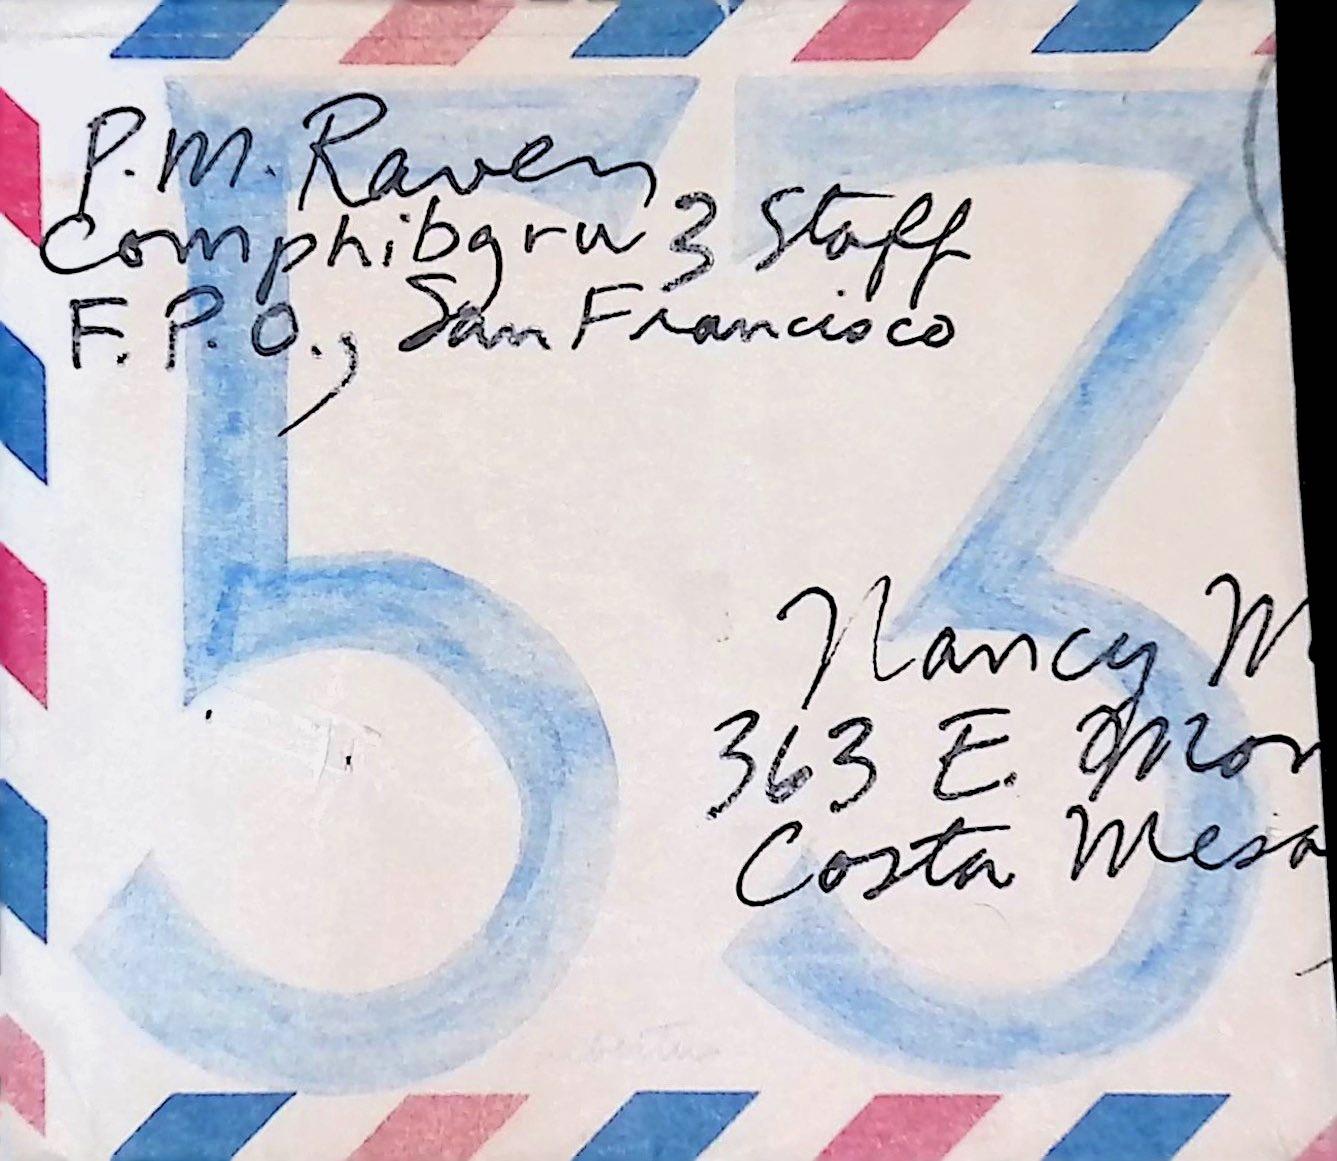 53
P.M. Raven
Comphibgru 3 Staff
F.P.O., San Francisco
Nancy M
363 E. Mon
Costa Mesa